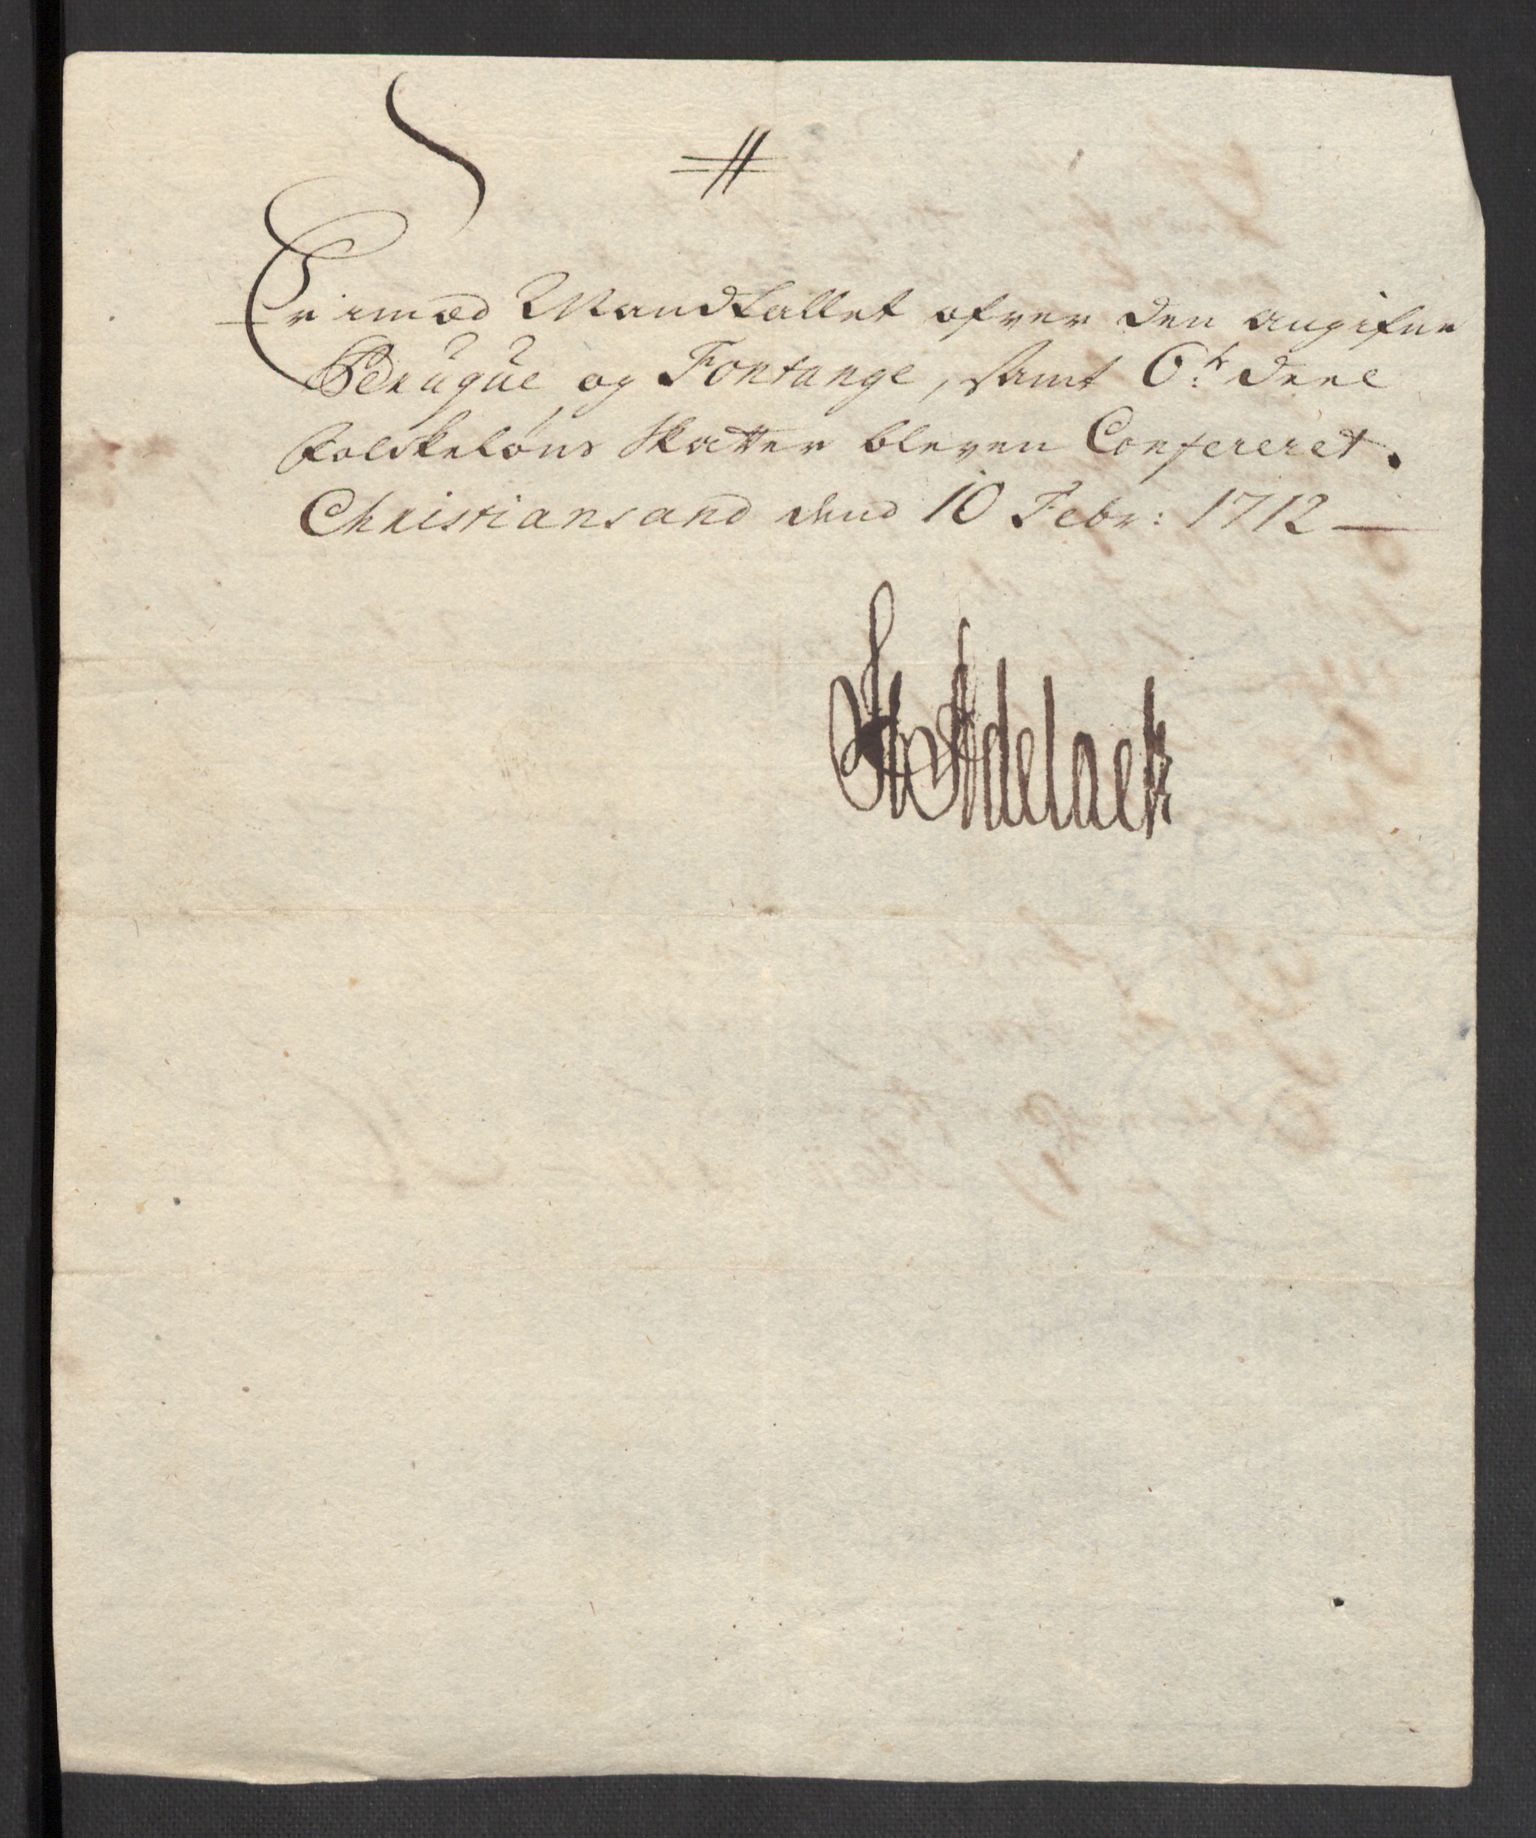 Er imod Mandtallet ofver den angifne
Peruque og Fontange, samt 6te deel
Folckeløns Skatter bleven Confereret.
Christiansand dend 10 Febr: 1712
Adelaer